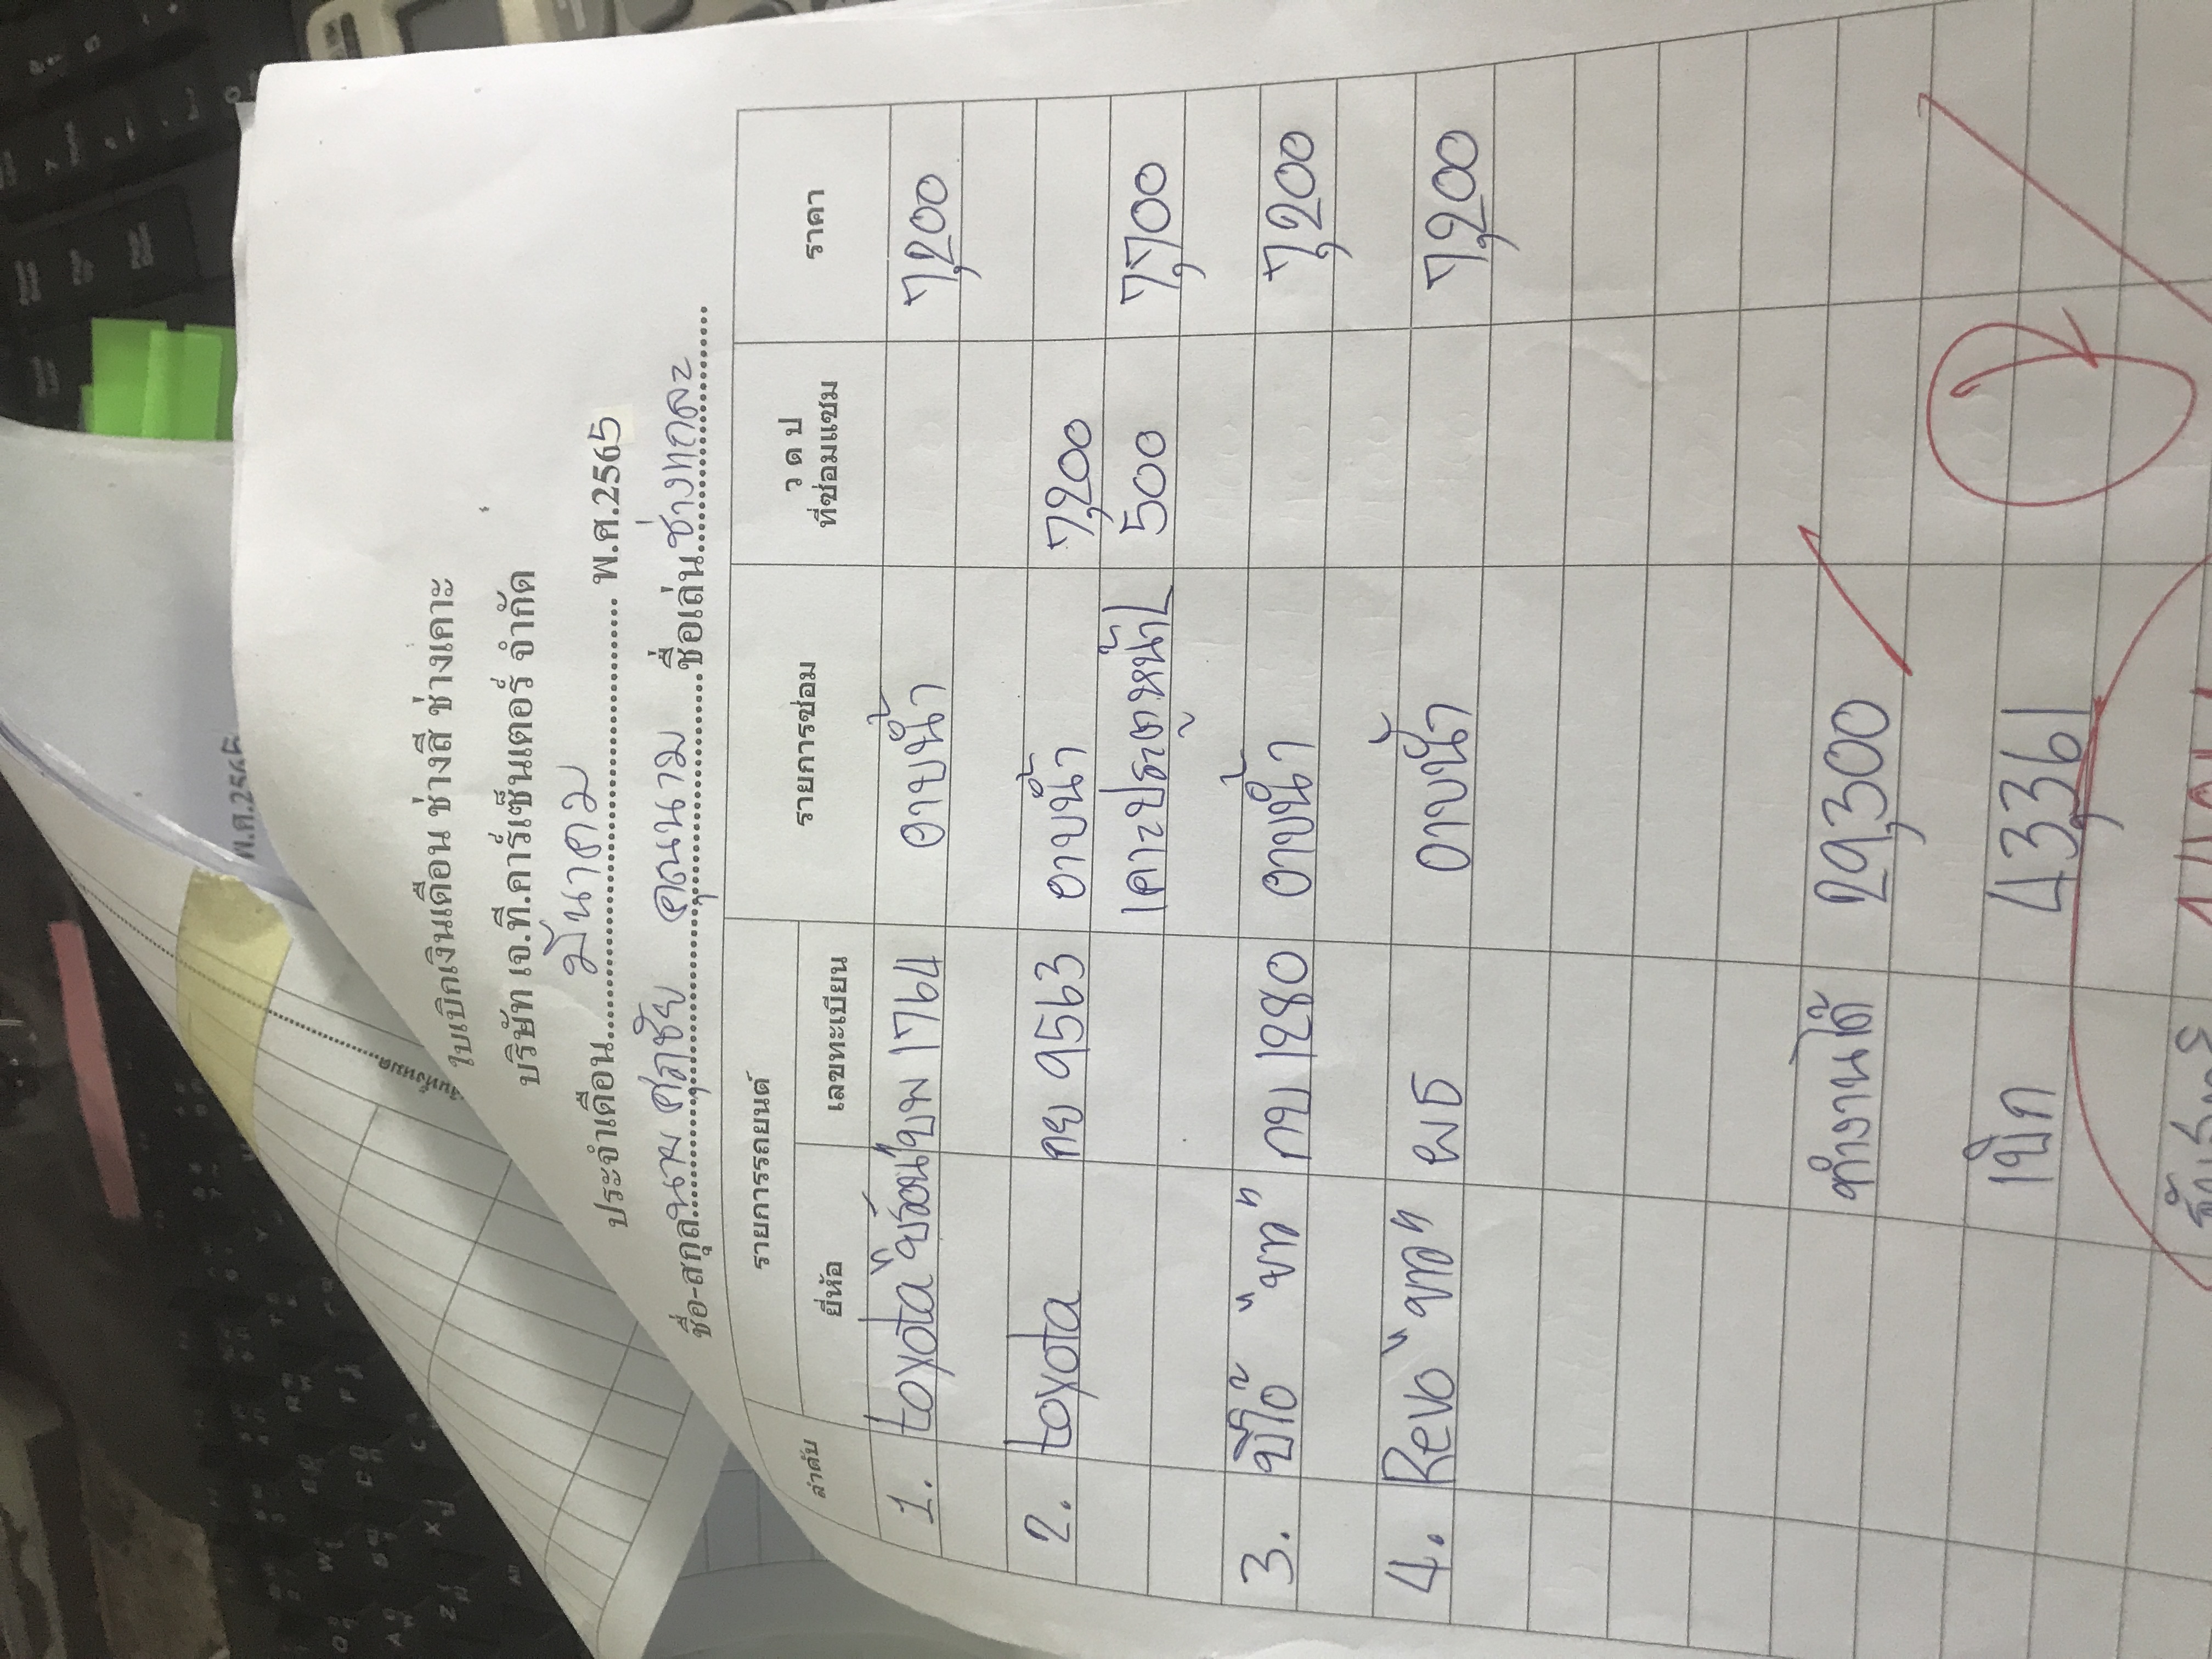 ใบเบิกเงินเดือน ช่างสี ช่างเคาะ
บริษัท เจ.ที.คาร์เซ็นเตอร์ จำกัด
ประจำเดือน มีนาคม พ.ศ.2565
ชื่อ-สกุล นาม ศุภชัย คุณนาม ชื่อเล่น
ลำดับ รายการรถยนต์ รายการซ่อม ว ด ป ที่ซ่อมแซม ราคา
ยี่ห้อ เลขทะเบียน
1. toyota 1764 อาบน้ำ 7,200
2. toyota กย 9563 อาบน้ำ 7,200
เคาะประตูหน้าL 500 7,700
3. วีโก้ "ขาว" กบ 1280 อาบน้ำ 7,200
4. Revo "ขาว" อาบน้ำ 7,200
ทำงานได้ 29,300
เบิก 4,361
พ.ศ.2565